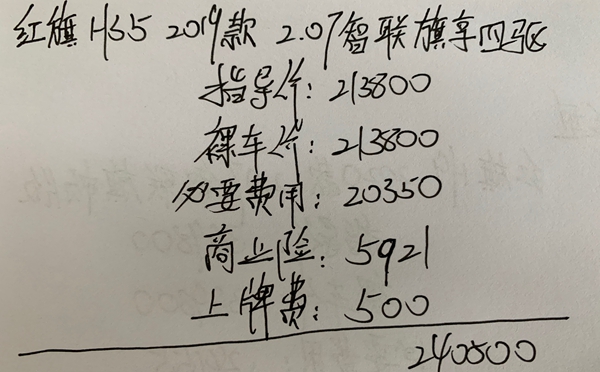 红旗 HS5 2019款 2.0T智联旗享四驱
指导价: 213800
裸车价: 213800
必要费用: 20350
商业险: 5921
上牌费: 500
240500